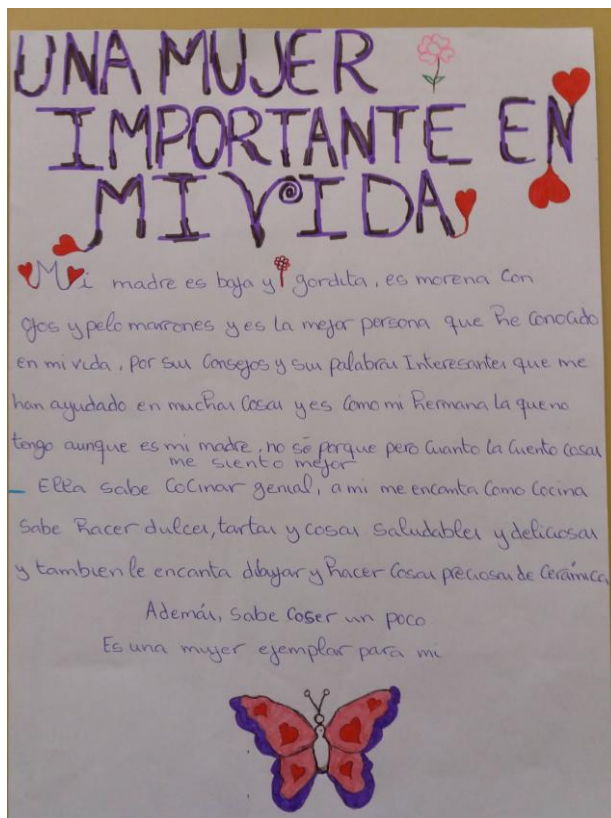 UNA MUJER
IMPORTANTE EN
MI VIDA
Mi madre es baja y gordita, es morena con
ojos y pelo marrones y es la mejor persona que he conocido
en mi vida, por sus consejos y sus palabras Interesantes que me
han ayudado en muchas cosas y es como mi hermana la que no
tengo aunque es mi madre, no sé porque pero cuanto la cuento cosas
me siento mejor
Ella sabe cocinar genial, a mi me encanta como cocina
sabe hacer dulces, tartas y cosas saludables y deliciosas
y tambien le encanta dibujar y hacer cosas preciosas de cerámica
Además, sabe coser un poco
Es una mujer ejemplar para mi